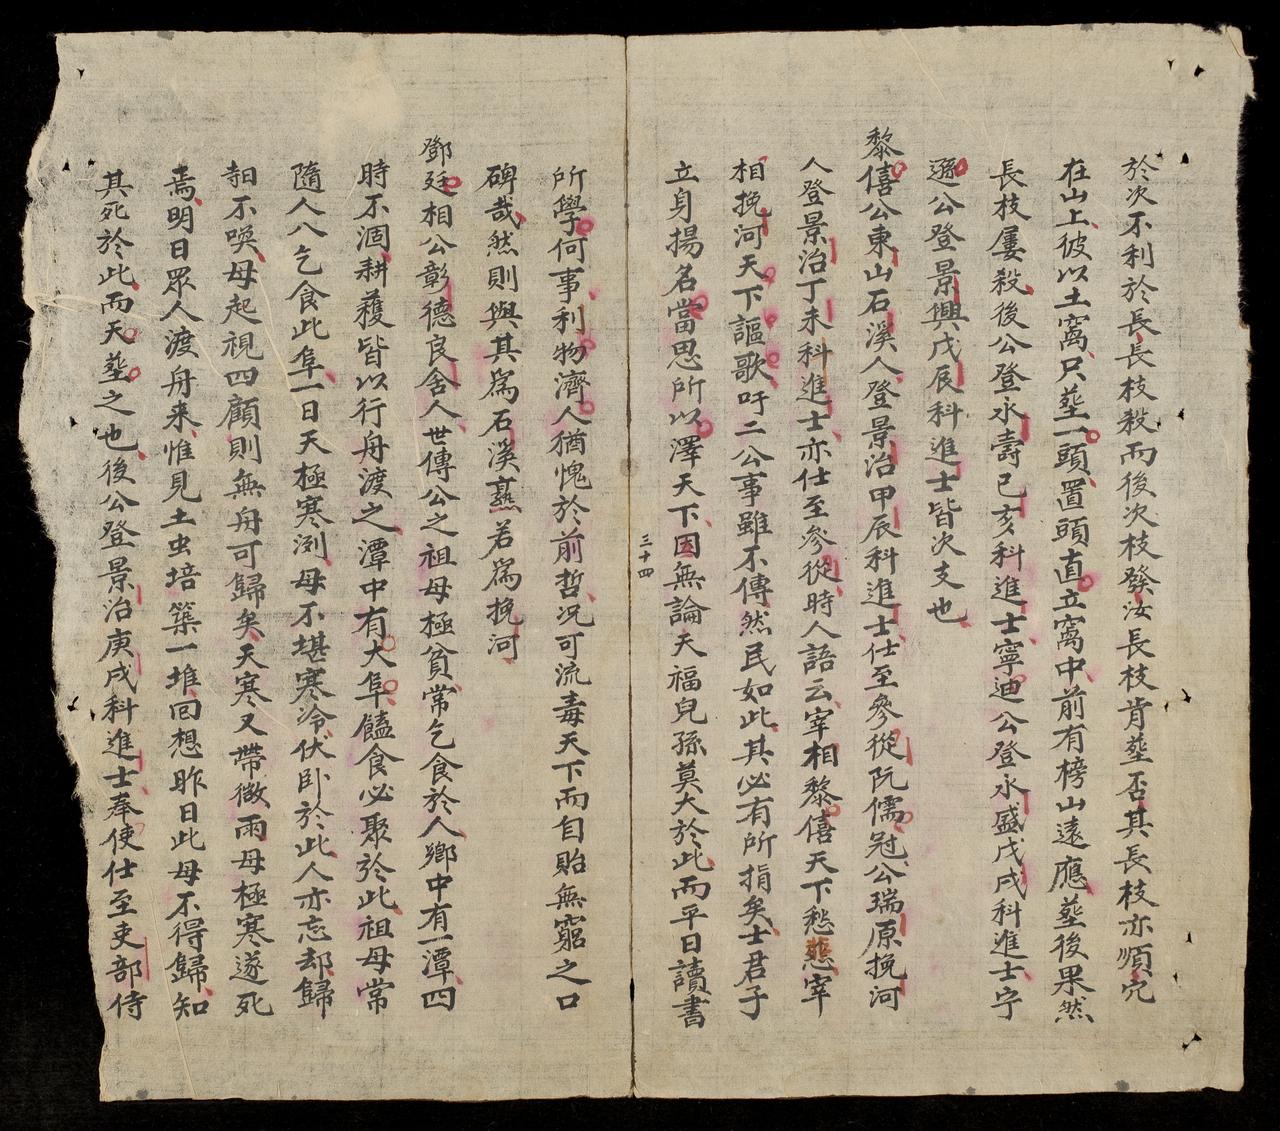 於次不利於長長枝殺而後次枝發汝長枝肯塟否其長枝亦順穴
在山上彼以土窩只塟一頭置頭直立窩中前有榜山遠應塟後果然
長枝屢殺後公登永壽己亥科進士寧迪公登永盛戊戌科進士宁
遜公登景興戊辰科進士皆次支也
黎僖公東山石溪人登景治甲辰科進士仕至參從阮儒冠公瑞原挽河
人登景治丁未科進士亦仕至參從時人語云宰相黎僖天下愁悲宰
相挽河天下謳歌吁二公事雖不傳然民如此其必有所指矣士君子
立身揚名當思所以澤天下因無論天福兒孫莫大於此而平日讀書
三十四
所學何事利物濟人猶愧於前哲况可流毒天下而自貽無窮之口
碑哉然則與其爲石溪熹若爲挽河
鄧廷相公彰德良舍人世傳公之祖母極貧常乞食於人鄉中有一潭四
時不涸耕蘀皆以行舟渡之潭中有大阜饁食必聚於此祖母常
隨人八乞食此阜一日天極寒冽母不堪寒冷伏卧於此人亦忘却歸
𣅶不喚母起視四顧則無舟可歸矣天寒又帶微雨母極寒遂死
焉明日眾人渡舟来惟見土虫培築一堆囘想昨日此母不得歸知
其死於此而天塟之也後公登景治庚戌科進士奉使仕至吏部侍